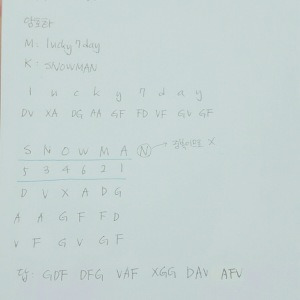 암호화
M: lucky7day
K: SNOWMAN
l u c k y 7 d a y
DV XA DG AA GF FD VF GV GF
S N O W M A N → 중복이므로 X
5 3 4 6 2 1
D V X A D G
A A G F F D
V F G V G F
답: GDF DFG VAF XGG DAV AFV